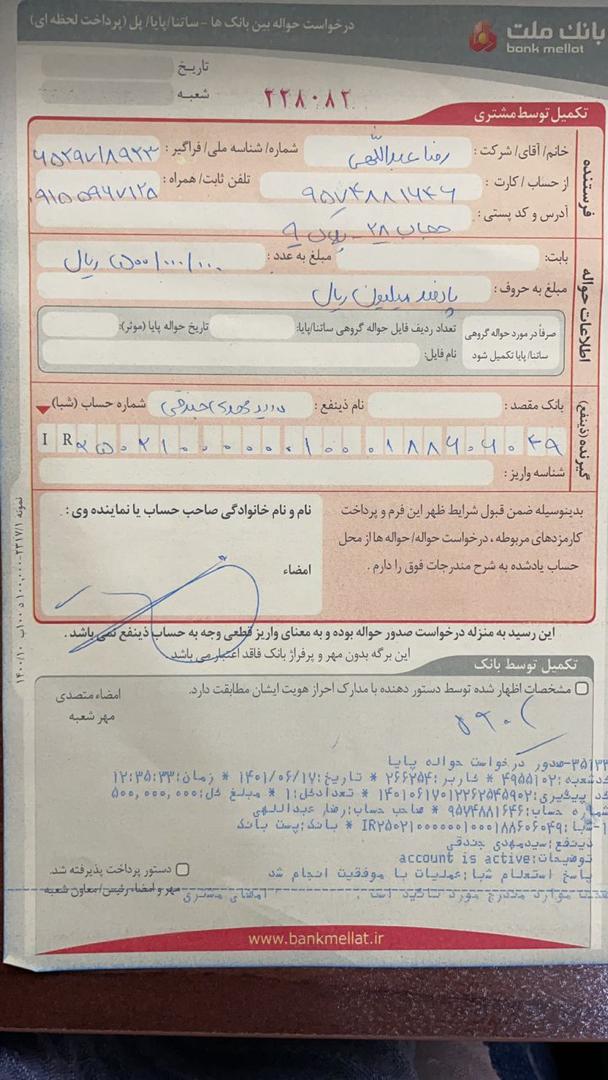 درخواست حواله بین بانک ها - ساتنا/پایا/ پل (پرداخت لحظه ای)
بانک ملت
bank mellat
تاریخ
شعبه
۲۲۸۰۸۲
تکمیل توسط مشتری
فرستنده
خانم/ آقای/ شرکت: رضا عبداللهی شماره/ شناسه ملی/ فراگیر:
از حساب / کارت: ۹۵۷۴۸۸۱۶۴۶ تلفن ثابت/ همراه:
آدرس و کد پستی:
اطلاعات حواله
بابت: مبلغ به عدد: ۵۰۰/۰۰۰/۰۰۰ ریال
مبلغ به حروف: پانصد میلیون ریال
صرفاً در مورد حواله گروهی ساتنا/ پایا تکمیل شود
تعداد ردیف فایل حواله گروهی ساتنا/پایا: تاریخ حواله پایا (موثر):
نام فایل:
گیرنده (ذینفع)
بانک مقصد: نام ذینفع: سید مهدی جندقی شماره حساب (شبا)
IR۲۵۰۲۱۰۰۰۰۰۰۱۰۰۰۱۸۸۶۰۶۰۴۹
شناسه واریز:
بدینوسیله ضمن قبول شرایط ظهر این فرم و پرداخت
کارمزدهای مربوطه، درخواست حواله/ حواله ها از محل
حساب یادشده به شرح مندرجات فوق را دارم.
نام و نام خانوادگی صاحب حساب یا نماینده وی:
امضاء
این رسید به منزله درخواست صدور حواله بوده و به معنای واریز قطعی وجه به حساب ذینفع نمی باشد.
این برگه بدون مهر و پرفراژ بانک فاقد اعتبار می باشد.
تکمیل توسط بانک
مشخصات اظهار شده توسط دستور دهنده با مدارک احراز هویت ایشان مطابقت دارد.
امضاء متصدی
مهر شعبه
۳۵۱۳۳-صدور درخواست حواله پایا
کدشعبه:۴۹۵۵۱۰۲ * کاربر:۲۶۶۲۵۴ * تاریخ:۱۴۰۱/۰۶/۱۷ * زمان:۱۲:۳۵:۳۳
کد پیگیری:۱۴۰۱۰۶۱۷۰۱۲۲۶۲۵۴۵۹۰۲ * تعدادکل:۱ * مبلغ کل:۵۰۰,۰۰۰,۰۰۰
شماره حساب:۹۵۷۴۸۸۱۶۴۶ * صاحب حساب:رضا عبداللهی
۱-شبا:IR۲۵۰۲۱۰۰۰۰۰۰۱۰۰۰۱۸۸۶۰۶۰۴۹ * بانک:پست بانک
ذینفع:سیدمهدی جندقی
توضیحات:account is active
پاسخ استعلام شبا:عملیات با موفقیت انجام شد
صحت موارد مندرج مورد تائید است . امضای مشتری
دستور پرداخت پذیرفته شد.
مهر و امضاء رئیس/ معاون شعبه
www.bankmellat.ir